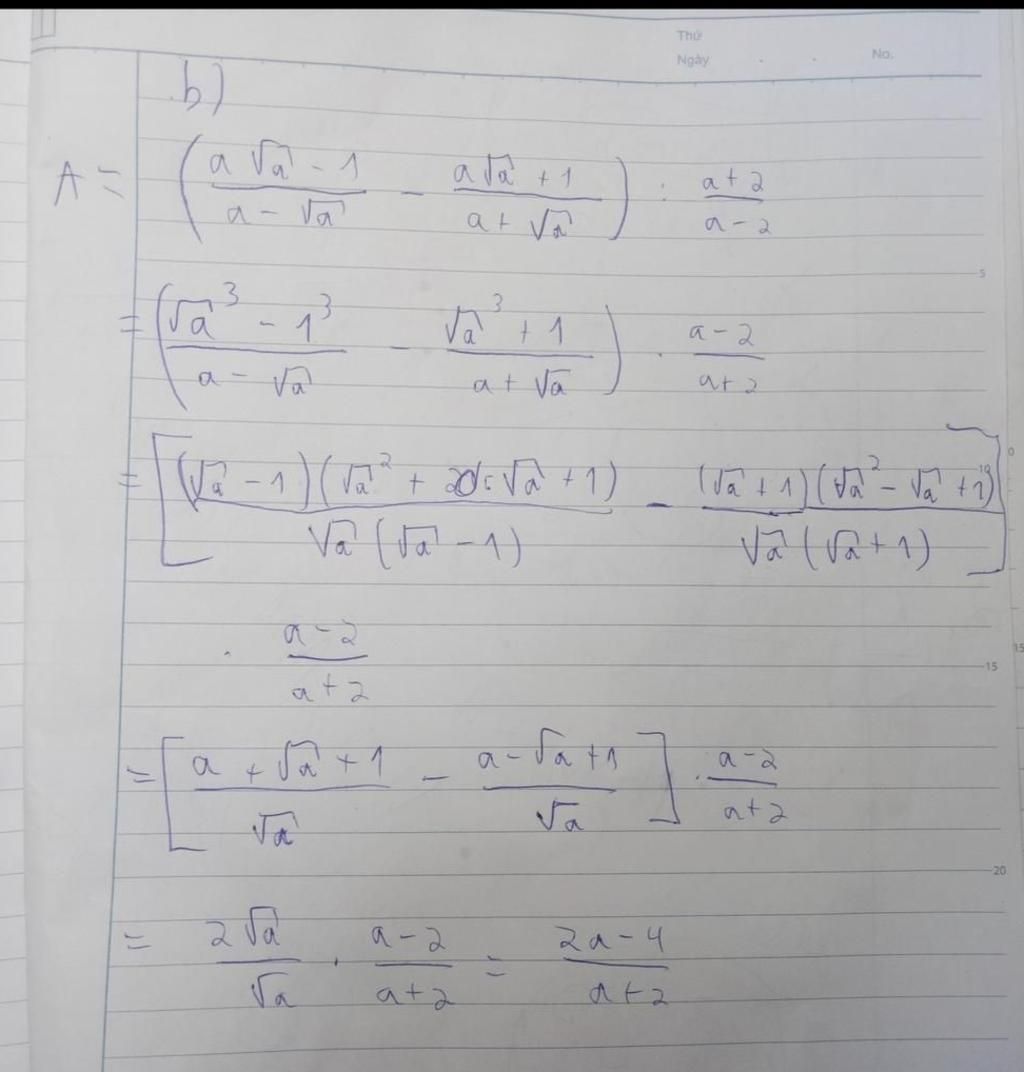 Thứ
Ngày . . No.
b)
A = ( (a√a - 1)/(a - √a) - (a√a + 1)/(a + √a) ) : (a + 2)/(a - 2)
5
= ( (√a³ - 1³)/(a - √a) - (√a³ + 1)/(a + √a) ) · (a - 2)/(a + 2)
= [ (√a - 1)(√a² + √a + 1)/(√a(√a - 1)) - (√a + 1)(√a² - √a + 1)/(√a(√a + 1)) ]
10
· (a - 2)/(a + 2)
15
= [ (a + √a + 1)/√a - (a - √a + 1)/√a ] · (a - 2)/(a + 2)
20
= 2√a/√a · (a - 2)/(a + 2) = (2a - 4)/(a + 2)